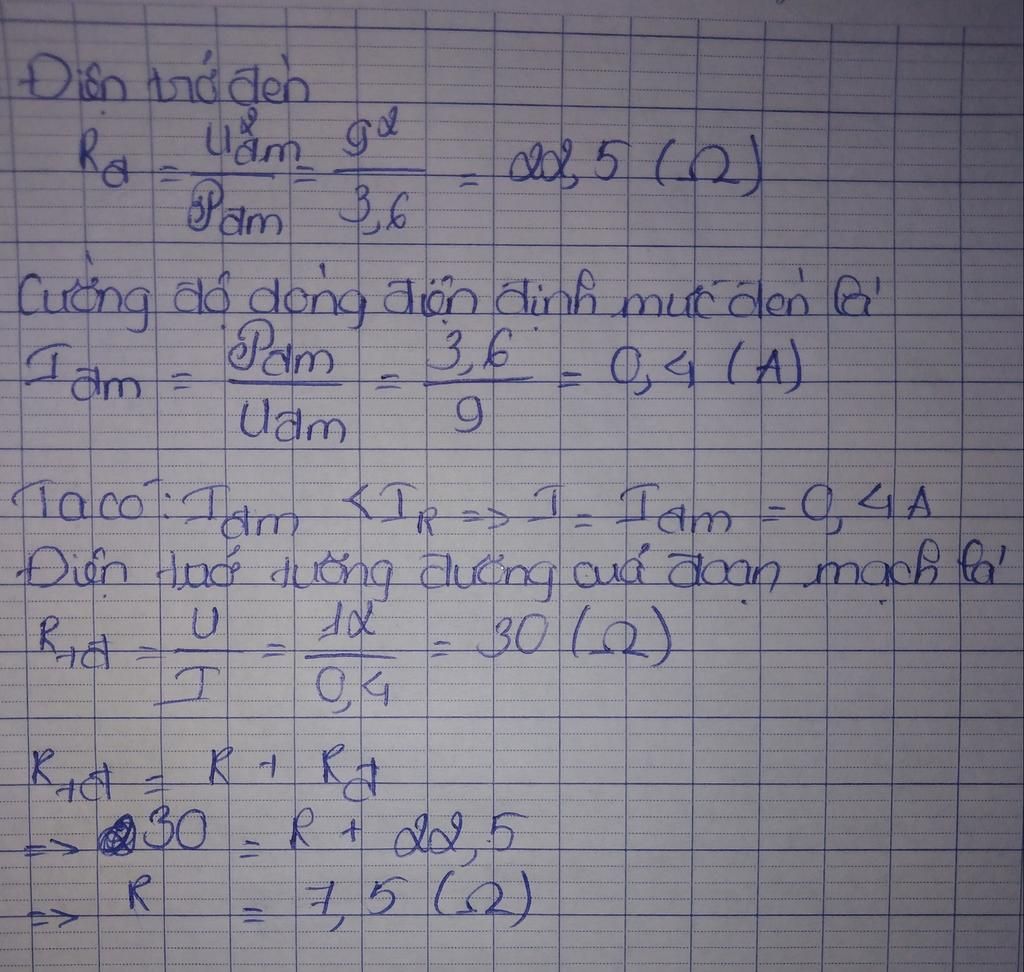 Điện trở đèn
Rđ = U²đm / Pđm = 9² / 3,6 = 22,5 (Ω)
Cường độ dòng điện định mức đèn là
Iđm = Pđm / Uđm = 3,6 / 9 = 0,4 (A)
Ta có: Iđm < IR => I = Iđm = 0,4A
Điện trở tương đương của đoạn mạch là
Rtđ = U / I = 12 / 0,4 = 30 (Ω)
Rtđ = R + Rđ
=> 30 = R + 22,5
=> R = 7,5 (Ω)